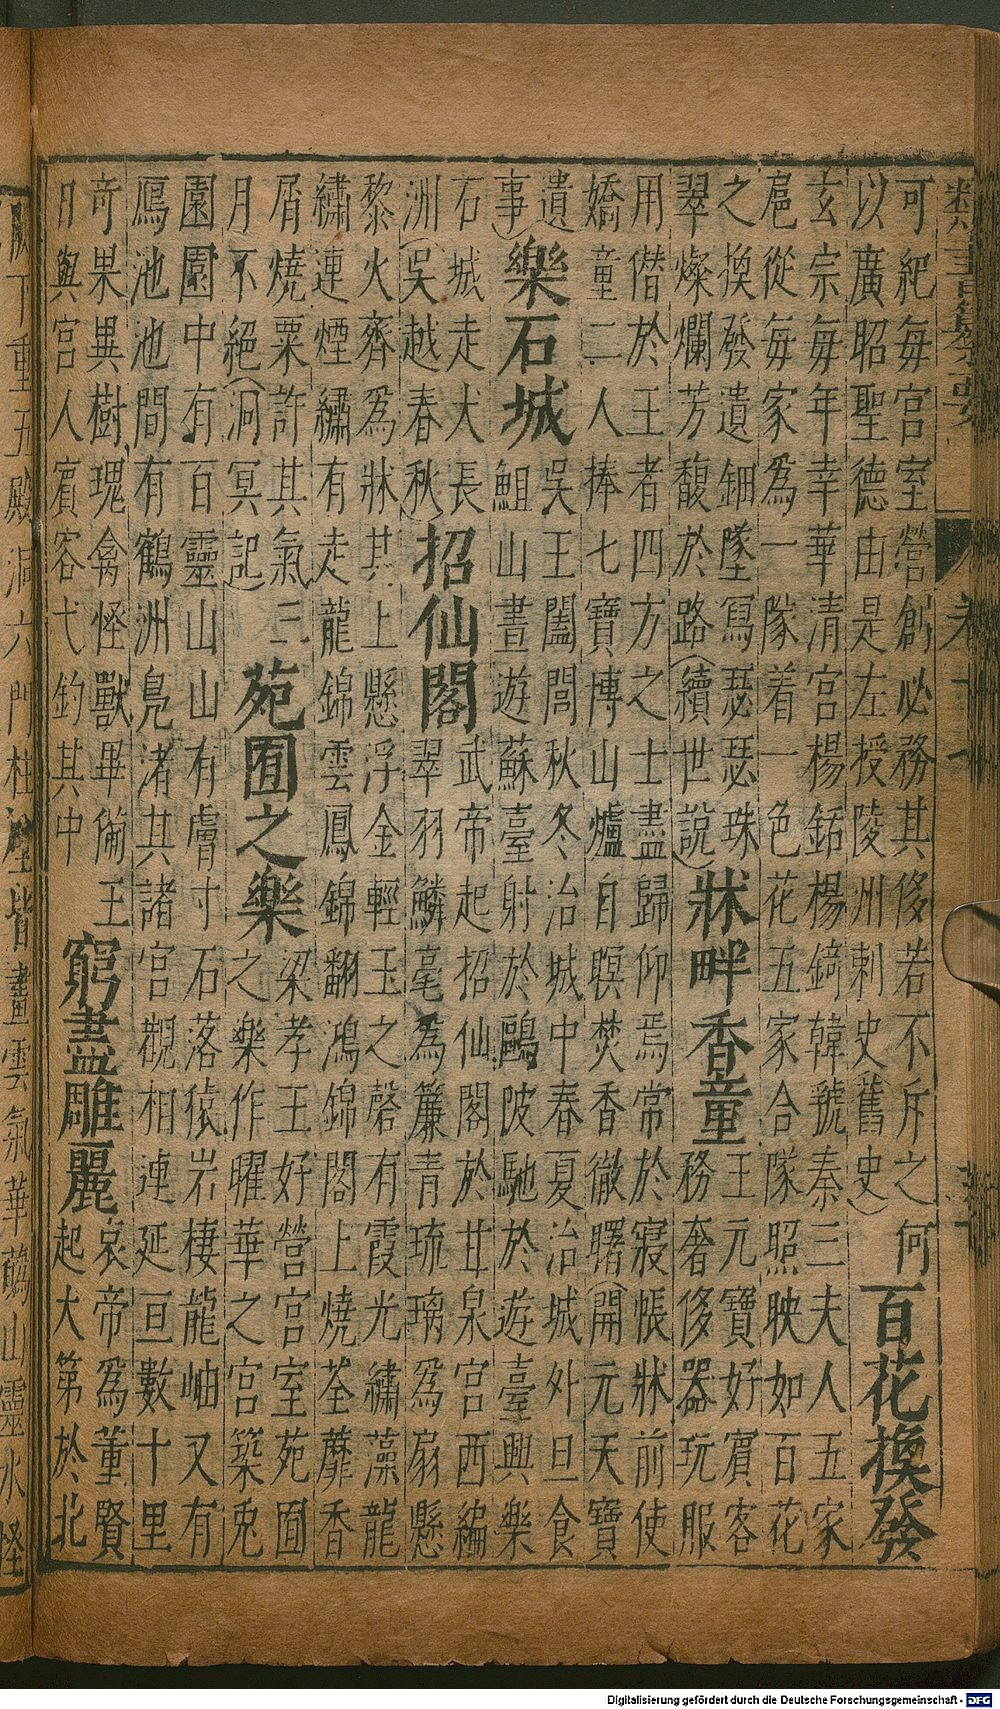 類書纂要 卷十七
可紀每宮室營創必務其侈若不斥之何
以廣昭聖德由是左授陵洲刺史(舊史)
百花換發
玄宗每年幸華清宮楊銛楊錡韓虢秦三夫人五家
扈從每家為一隊着一色花五家合隊照映如百花
之換發遺鈿墜舄瑟瑟珠
翠燦爛芳馥於路(續世說)
牀畔香童
王元寶好賓客
務奢侈器玩服
用僣於王者四方之士盡歸仰焉常於寢帳牀前使
嬌童二人捧七寶博山爐自暝焚香徹曙(開元天寶
遺
事)
樂石城
吳王闔閭秋冬治城中春夏治城外旦食
䱉山晝遊蘇臺射於鷗陂馳於遊臺興樂
石城走犬長
洲(吳越春秋)
招仙閣
武帝起招仙閣於甘泉宮西編
翠羽鱗毫為簾青琉璃為扇懸
黎火齊為牀其上懸浮金輕玉之磬有霞光繡藻龍
繡連煙繡有走龍錦雲鳳錦翻鴻錦閣上燒荃蘼香
屑燒粟許其氣三
月不絕(洞冥記)
苑囿之樂
梁孝王好營宮室苑囿
之樂作曜華之宮築兎
園園中有百靈山山有膚寸石落猿岩棲龍岫又有
鴈池池間有鶴洲鳧渚其諸宮觀相連延亘數十里
奇果異樹瑰禽怪獸畢俻王
日與宮人賓客弋釣其中
窮盡雕麗
哀帝為董賢
起大第於北
闕下重五殿洞六門柱壁皆畫雲氣華蘤山靈水怪
Digitalisierung gefördert durch die Deutsche Forschungsgemeinschaft - DFG